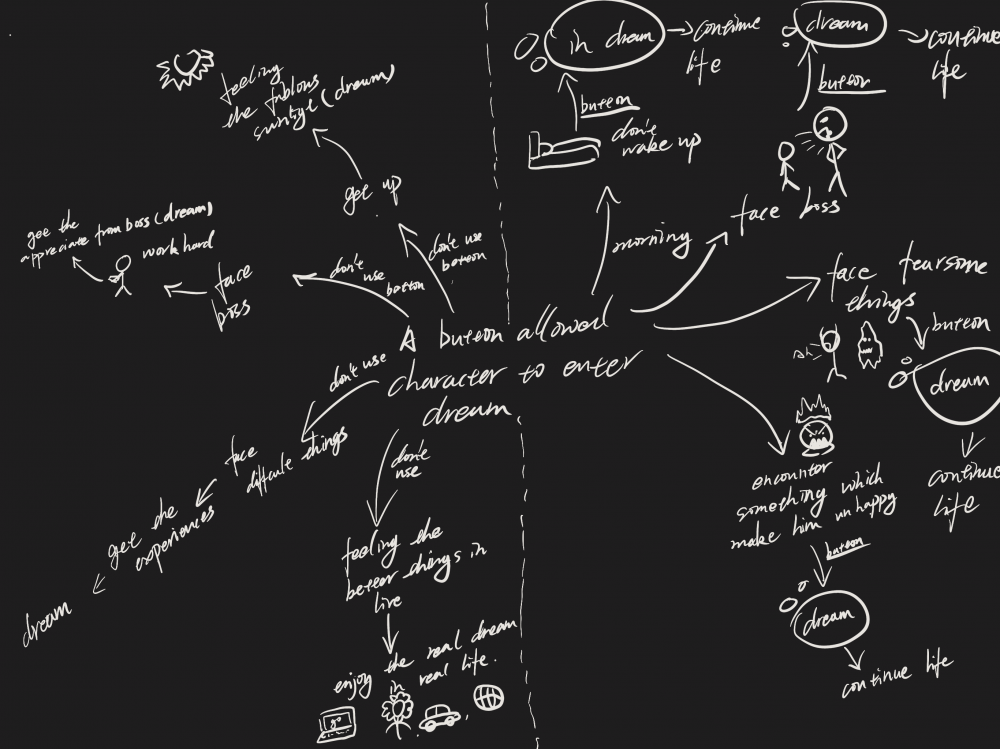 A button allowed
character to enter
dream
morning
don't
wake up
button
in dream
continue
life
face boss
button
dream
continue
life
face fearsome
things
ah
button
dream
continue
life
encounter
something which
make him unhappy
button
dream
continue life
don't use
button
get up
feeling
the fablous
sunligt (dream)
don't use
button
face
boss
work hard
gee the
appreciate from boss (dream)
don't use
face
difficule things
get the
experiences
dream
don't
use
feeling the
better things in
live
enjoy the real dream
in real life.